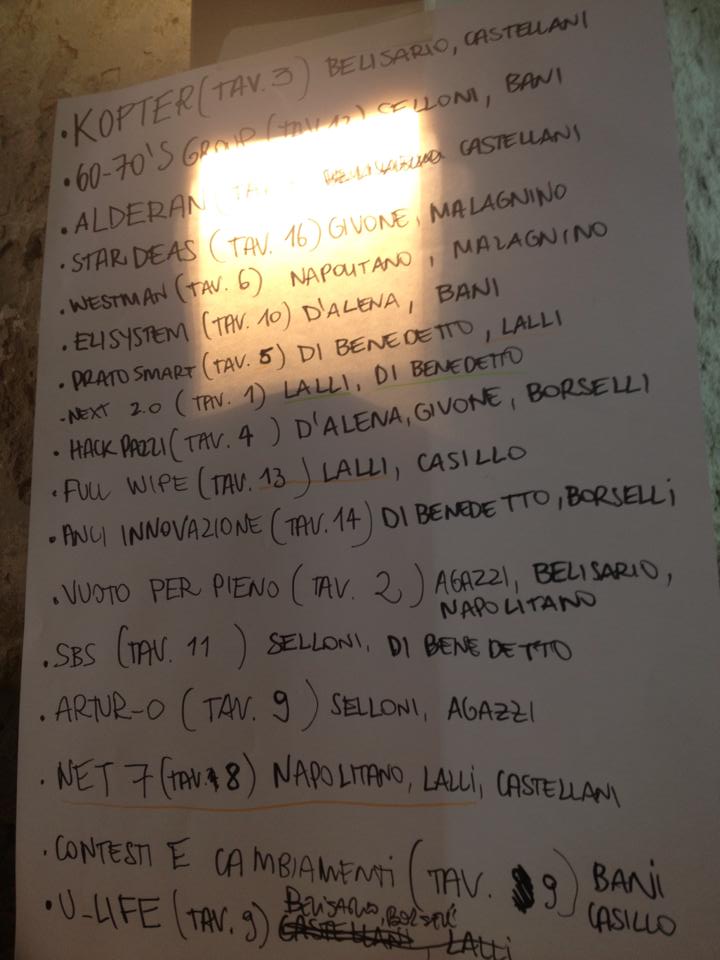 • KOPTER (TAV. 3) BELISARIO, CASTELLANI
• 60-70'S GROUP (TAV. 12) SELLONI, BANI
• ALDERAN (TA CASTELLANI
• STARIDEAS (TAV. 16) GIVONE, MALAGNINO
• WESTMAN (TAV. 6) NAPOLITANO, MALAGNINO
• ELISYSTEM (TAV. 10) D'ALENA, BANI
• PRATO SMART (TAV. 5) DI BENEDETTO, LALLI
• NEXT 2.0 (TAV. 1) LALLI, DI BENEDETTO
• HACK PAZZI (TAV. 4) D'ALENA, GIVONE, BORSELLI
• FULL WIPE (TAV. 13) LALLI, CASILLO
• ANCI INNOVAZIONE (TAV. 14) DI BENEDETTO, BORSELLI
• VUOTO PER PIENO (TAV. 2) AGAZZI, BELISARIO,
NAPOLITANO
• SBS (TAV. 11) SELLONI, DI BENEDETTO
• ARTUR-O (TAV. 9) SELLONI, AGAZZI
• NET 7 (TAV. 8) NAPOLITANO, LALLI, CASTELLANI
• CONTESTI E CAMBIAMENTI (TAV. 9) BANI
CASILLO
BELISARIO, BORSELLI
• U-LIFE (TAV. 9) CASTELLANI LALLI